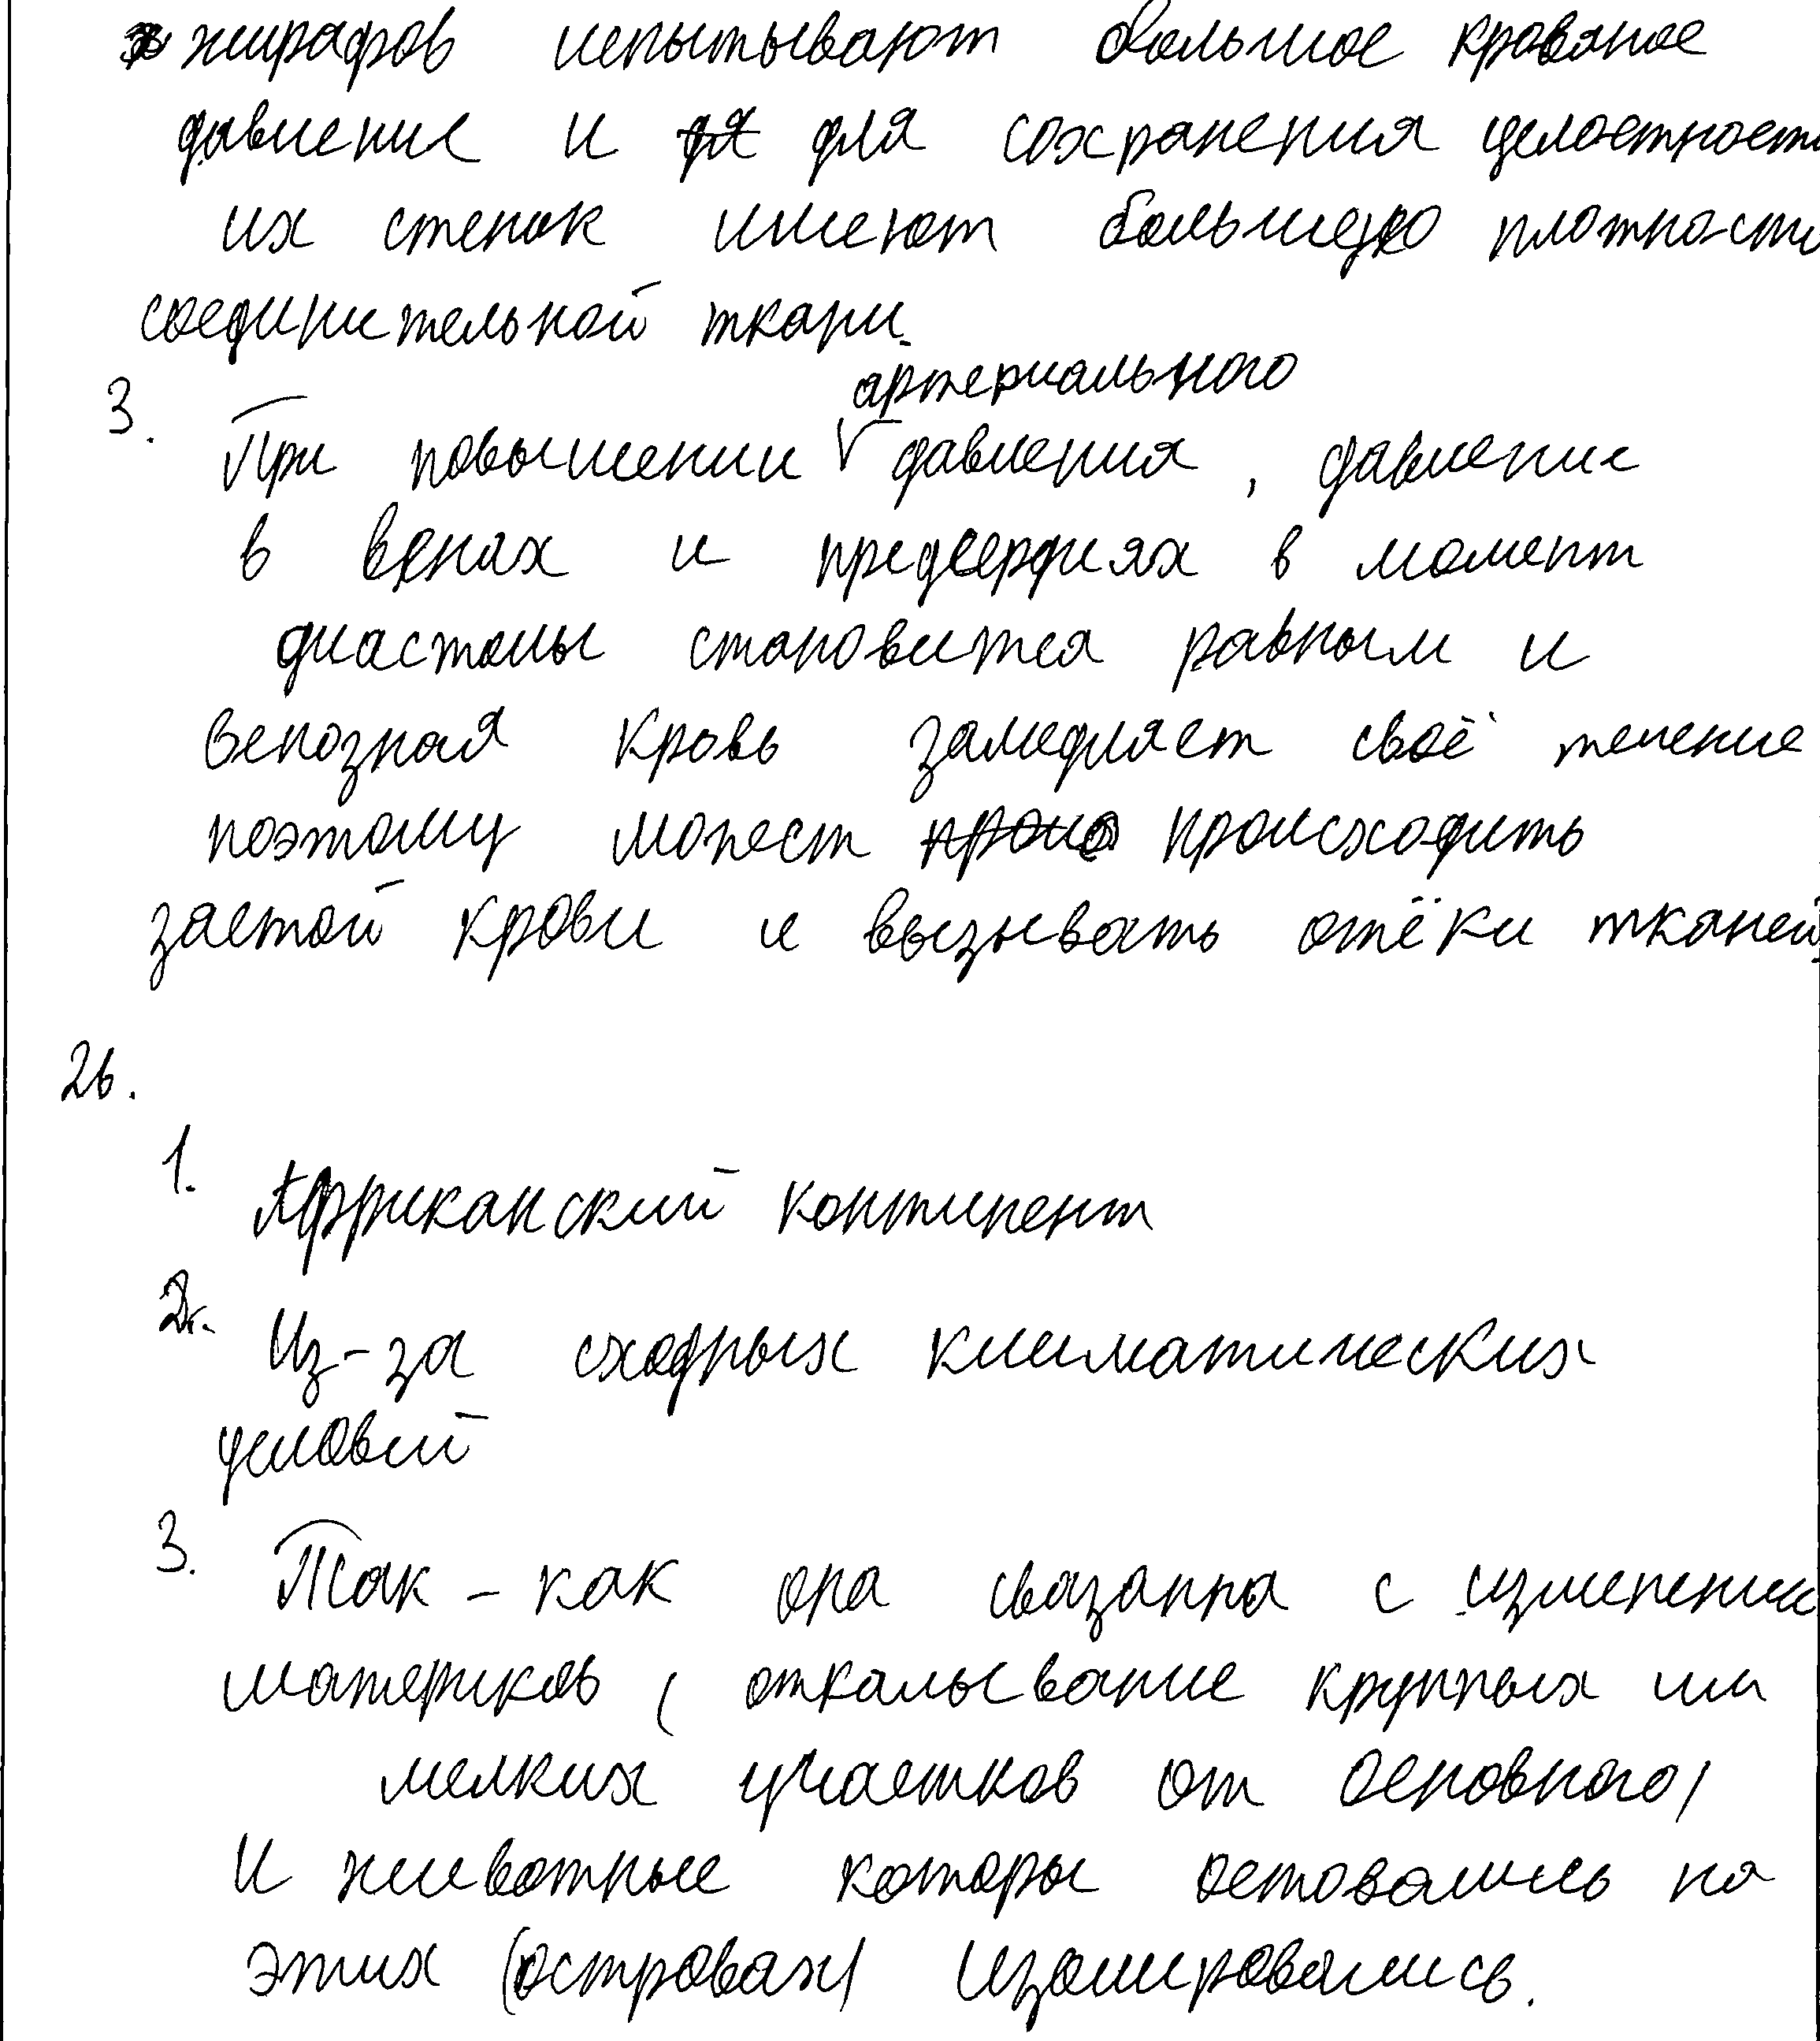 жирафов испытывают большое кровяное
давление и для сохранения целостности
их стенок имеют большую плотность
соединительной ткани.
артериального
3. При повышении давления, давление
в венах и предсердиях в момент
диастолы становится равным и
венозная кровь замедляет своё течение
поэтому может происходить
застой крови и вызывать отёки тканей.
26.
1. Африканский континент
2. Из-за сходных климатических
условий
3. Так-как она связанна с изменением
материков, откалывание крупных или
мелких участков от основного,
И животные которы оставались на
этих (островах) изолировались.